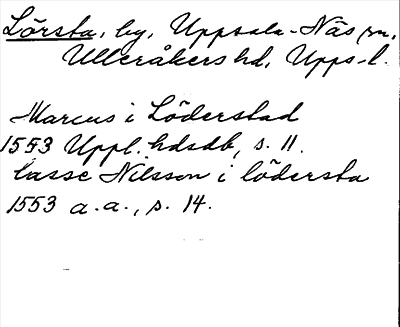 Lörsta, by, Uppsala-Näs sn,
Ulleråkers hd, Upps-l.
Marcus i Löderstad
1553 Uppl. hdsdb, s. 11.
lasse Nilsson i lödersta
1553 a.a., s. 14.